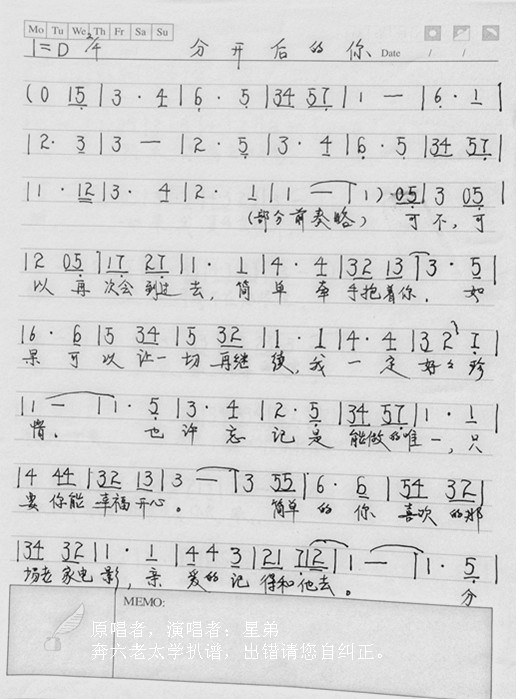 Mo Tu We Th Fr Sa Su
1=D 2/4 分开后的你 Date / /
(0 15|3·4|6·5|34 57|1 —|6·1|
|2·3|3 —|2·5|3·4|6·5|34 57|
|1·12|3·4|2·1|1 —|1) 05|3 05|
(部分前奏略) 可不,可
|2 05|17 27|1·1|4·4|32 13|3·5|
以 再 次会 到过 去, 简 单 牵 手抱着你. 如
|6·6|5 34|5 32|1·1|4·4|32 1|
果 可 以 让一 切 再继 续, 我 一 定 好々 珍
|1 —|1·5|3·4|2·5|34 57|1·1|
惜. 也 许 忘 记 是 能做的唯 一, 只
|4 44|32 13|3 —|3 55|6·6|54 32|
要 你能 幸福 开心。 简单 的 你 喜欢 的那
|34 32|1·1|4 4 3|21 712|1 —|1·5|
场老 家电 影, 亲 爱的 记 得和 他去。 分
MEMO:
原唱者，演唱者：星弟
奔六老太学扒谱，出错请您自纠正。